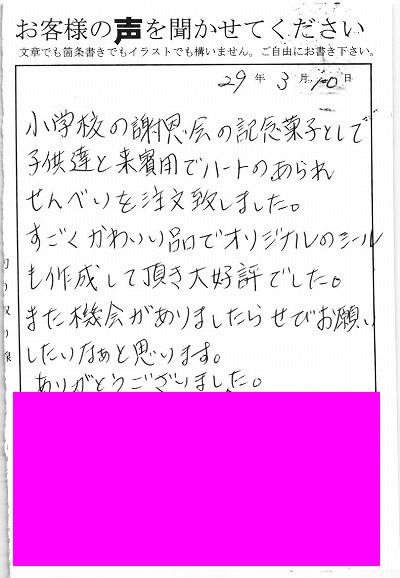 お客様の声を聞かせてください
文章でも箇条書きでもイラストでも構いません。ご自由にお書き下さい。
29年3月10日
小学校の謝恩会の記念菓子として
子供達と来賓用でハートのあられ
せんべいを注文致しました。
すごくかわいい品でオリジナルのシール
も作成して頂き大好評でした。
また機会がありましたらぜひお願い
したいなぁと思います。
ありがとうございました。